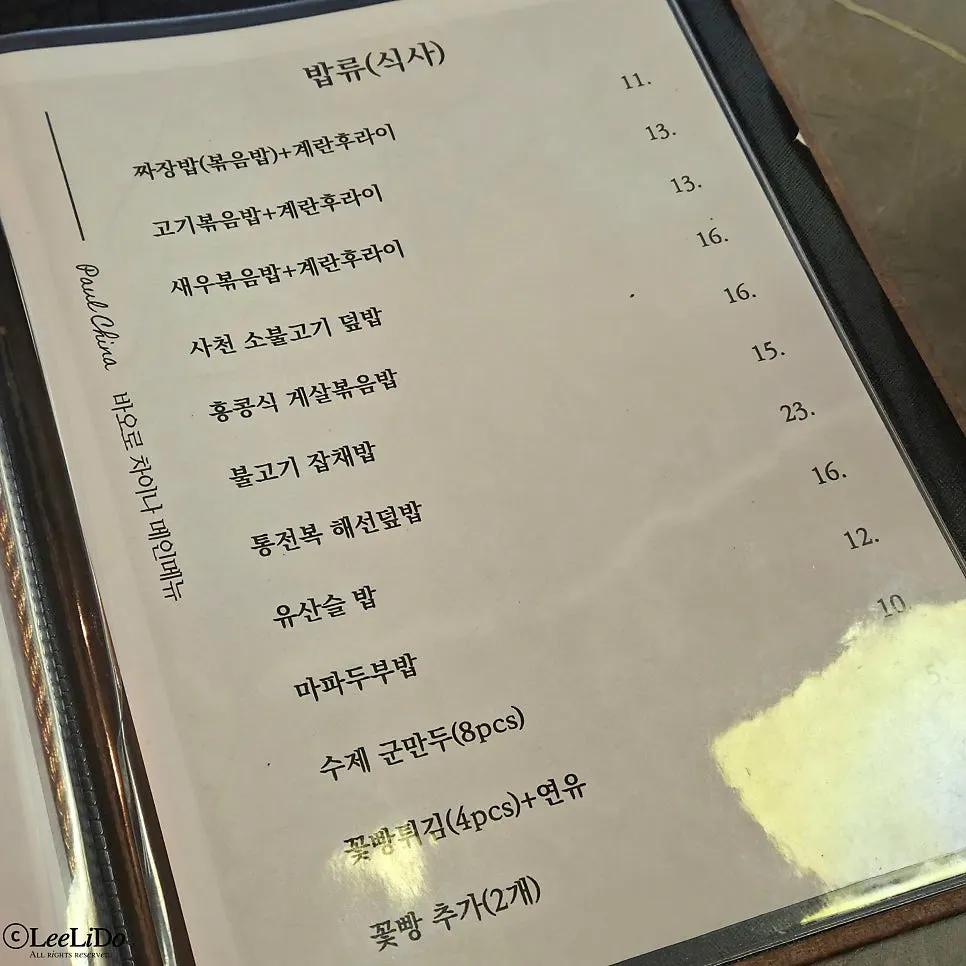 밥류(식사)
짜장밥(볶음밥)+계란후라이 11.
고기볶음밥+계란후라이 13.
새우볶음밥+계란후라이 13.
사천 소불고기 덮밥 16.
홍콩식 게살볶음밥 16.
불고기 잡채밥 15.
통전복 해선덮밥 23.
유산슬 밥 16.
마파두부밥 12.
수제 군만두(8pcs) 10.
꽃빵튀김(4pcs)+연유 5.
꽃빵 추가(2개)
Paul China 바오로 차이나 메인메뉴
©LeeLiDo
All rights reserved.